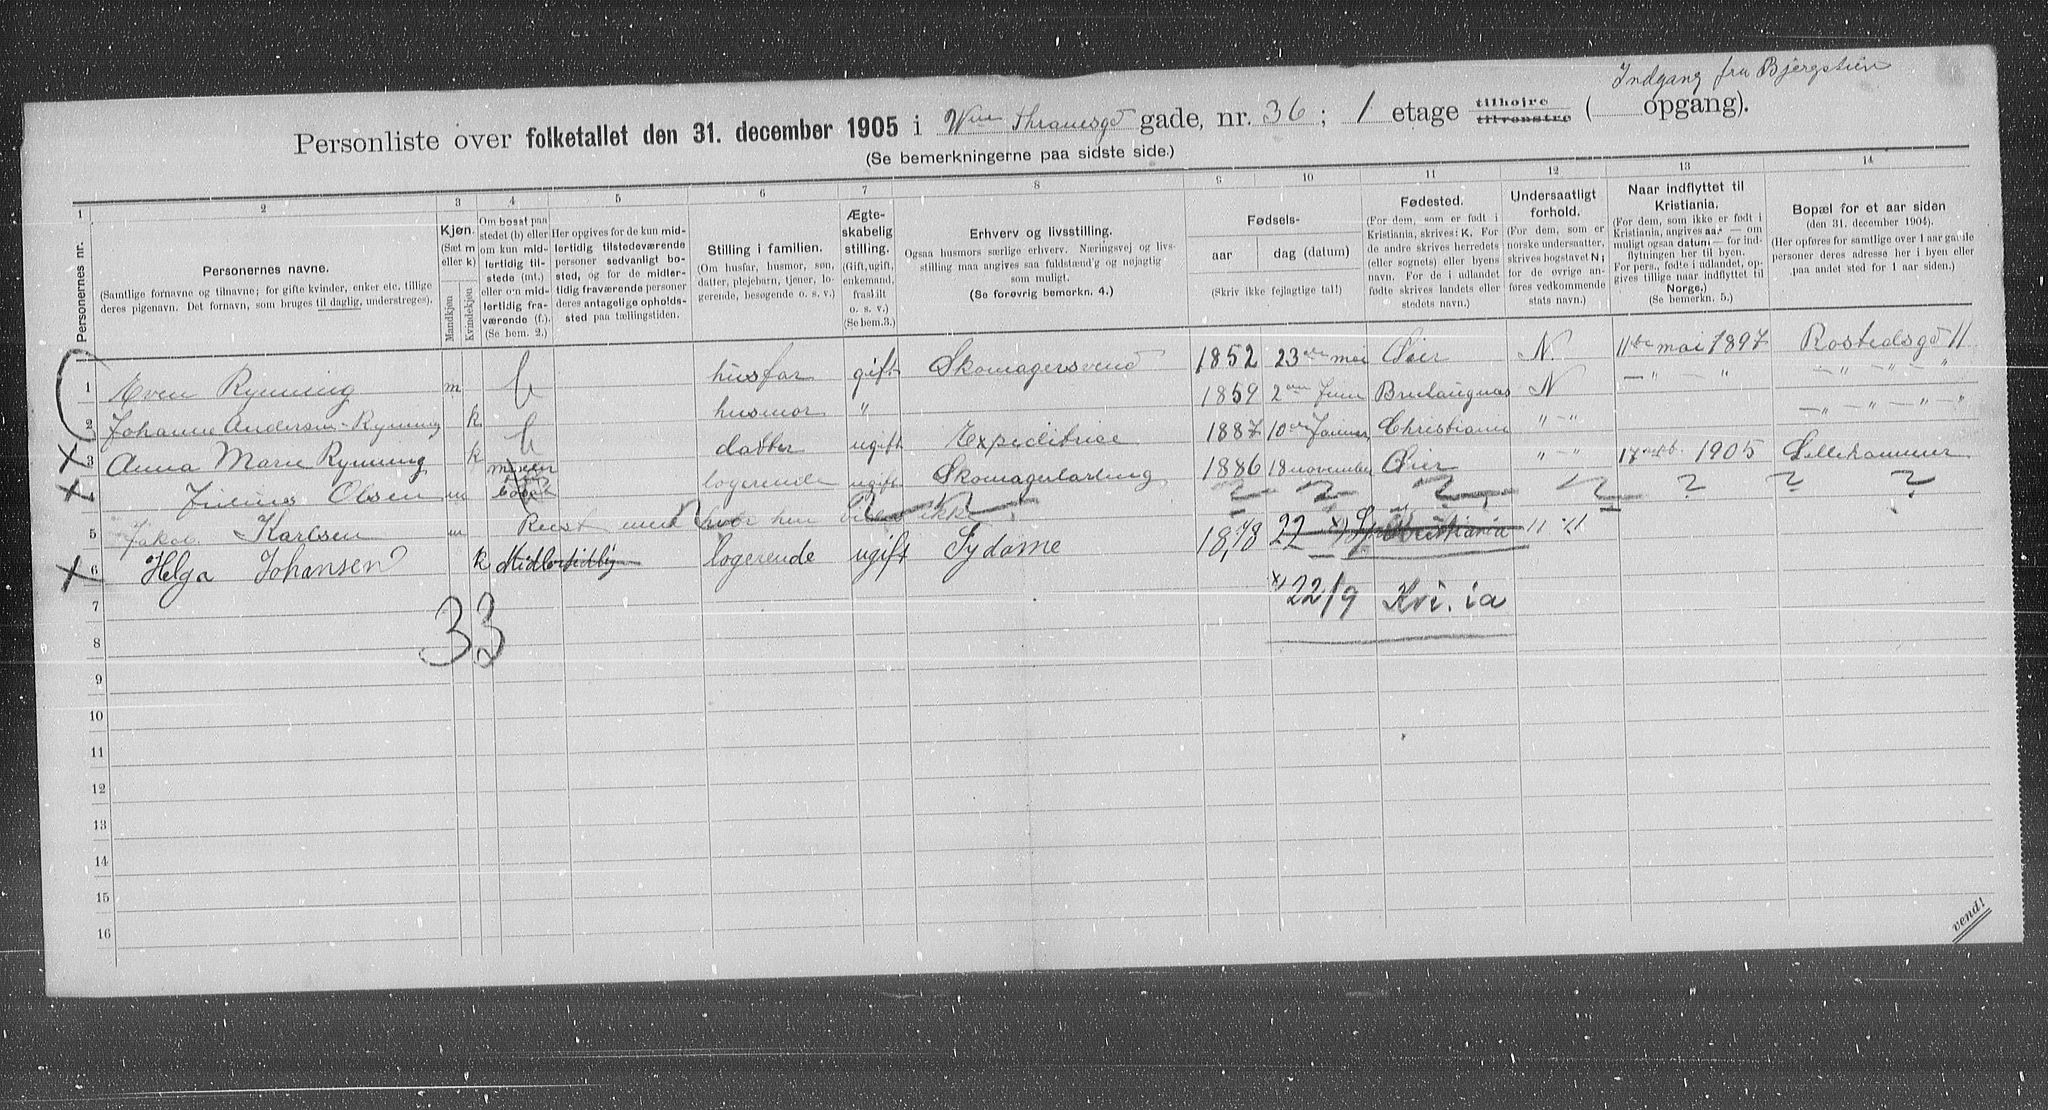 Indgang fra Bjergstien
Personliste over folketallet den 31. december 1905 i Wm Thranesgd gade, nr. 36; 1 etage tilhøjre tilvenstre ( opgang).
(Se bemerkningerne paa sidste side.)
1 2 3 4 5 6 7 8 9 10 11 12 13 14
Personernes nr.
Personernes navne.
(Samtlige fornavne og tilnavne; for gifte kvinder, enker etc. tillige deres pigenavn. Det fornavn, som bruges til daglig, understreges).
Kjøn.
(Sæt m eller k)
Mandkjøn
Kvindekjøn
Om bosat paa stedet (b) eller om kun midlertidig tilstede (mt.) eller om midlertidig fraværende (f.).
(Se bem. 2.)
Her opgives for de kun midlertidig tilstedeværende personer sedvanligt bosted, og for de midlertidig fraværende personer deres antagelige opholdssted paa tællingstiden.
Stilling i familien.
(Om husfar, husmor, søn, datter, plejebarn, tjener, logerende, besøgende o. s. v.)
Ægteskabelig stilling.
(Gift, ugift, enkemand, fraskilt o. s. v.)
(Se bem.3.)
Erhverv og livsstilling.
Ogsaa husmors særlige erhverv. Næringsvej og livsstilling maa angives saa fuldstænd'g og nøjagtig som muligt.
(Se forøvrig bemerkn. 4.)
Fødsels-
aar
dag (datum)
(Skriv ikke fejlagtige tal!)
Fødested.
(For dem, som er født i Kristiania, skrives: K. For de andre skrives herredets (eller sognets) eller byens navn. For de i udlandet fødte skrives landets eller stedets navn.)
Undersaatligt forhold.
(For dem, som er norske undersaatter, skrives bogstavet N; for de øvrige anføres vedkommende stats navn.)
Naar indflyttet til Kristiania.
(For dem, som ikke er født i Kristiania, angives aar — om muligt ogsaa datum — for indflytningen her til byen. For pers., fødte i udlandet, opgives tillige naar indflyttet til Norge.)
(Se bemerkn. 5.)
Bopæl for et aar siden
(den 31. december 1904).
(Her opføres for samtlige over 1 aar gamle personer deres adresse her i byen eller paa andet sted for 1 aar siden.)
1 Even Rynning m b husfar gift Skomagersvend 1852 23de mai Øier N. 11te mai 1897 Rostedsgd 11
2 Johanne Andersen-Rynning k husmor " 1859 2den Juni Brulaugnas N — " — " — " — " — "
3 Anna Marie Rynning k b datter ugift Expeditrice 1887 10de Januar Christiania " - " — " — " — " — "
4 Julius Olsen m logerende ugift Skomagerlærling 1886 18 november Øier " - " 17 1905 Lillehammer
5 Jakob Karlsen m Reist med hvor hen vides ikke ? ? ? ? ? ? ? ? ?
6 Helga Johansen k Midlertidlig logerende ugift Sydame 1878 22 x) Christiania " "
7 x) 22/9 Kri.ia
33
8
9
10
11
12
13
14
15
16
vend!